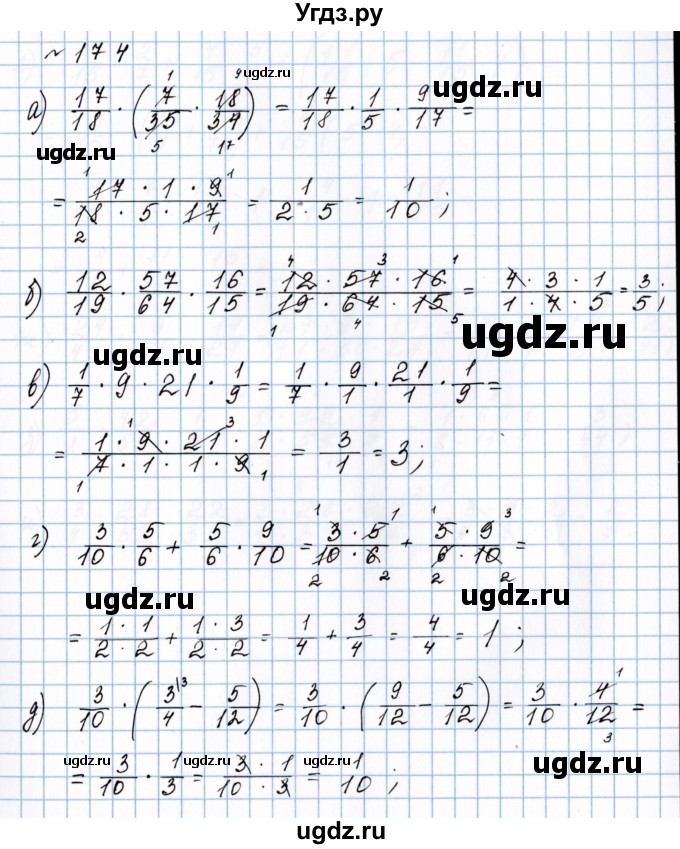 Угдз.ру
№ 174
а) 17/18 · (7/35 · 18/34) = 17/18 · 1/5 · 9/17 =
= (17 · 1 · 9)/(18 · 5 · 17) = 1/(2 · 5) = 1/10;
б) 12/19 · 57/64 · 16/15 = (12 · 57 · 16)/(19 · 64 · 15) = (4 · 3 · 1)/(1 · 4 · 5) = 3/5;
в) 1/7 · 9 · 21 · 1/9 = 1/7 · 9/1 · 21/1 · 1/9 =
= (1 · 9 · 21 · 1)/(7 · 1 · 1 · 9) = 3/1 = 3;
г) 3/10 · 5/6 + 5/6 · 9/10 = (3 · 5)/(10 · 6) + (5 · 9)/(6 · 10) =
= (1 · 1)/(2 · 2) + (1 · 3)/(2 · 2) = 1/4 + 3/4 = 4/4 = 1;
д) 3/10 · (3/4 - 5/12) = 3/10 · (9/12 - 5/12) = 3/10 · 4/12 =
= 3/10 · 1/3 = (3 · 1)/(10 · 3) = 1/10;
ugdz.ru